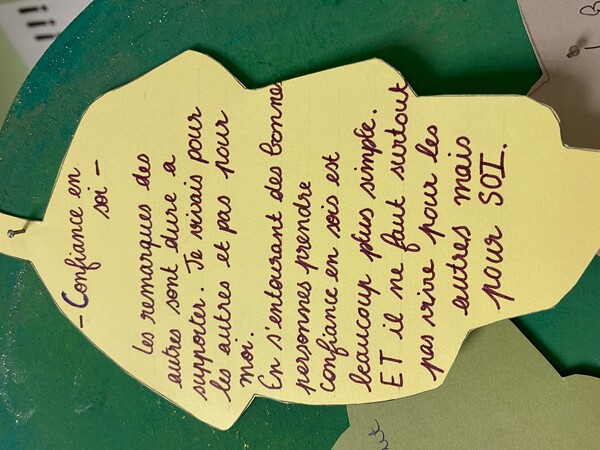 - Confiance en
soi -
les remarques des
autres sont dure a
supporter. Je vivais pour
les autres et pas pour
moi.
En s'entourant des bonne
personnes prendre
confiance en sois est
beaucoup plus simple.
ET il ne faut surtout
pas vivre pour les
autres mais
pour SOI.